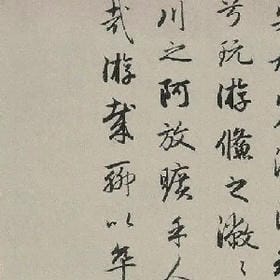 兮玩游鯈之潎〻
川之阿放曠乎人
哉游哉聊以卒